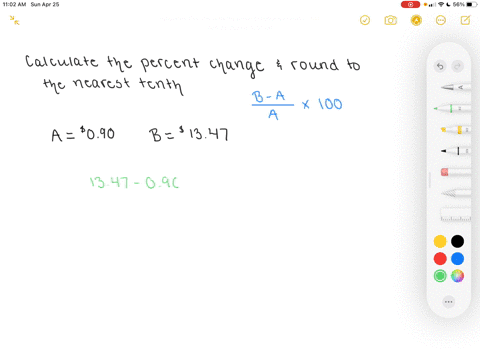 11:02 AM Sun Apr 25
56%
Calculate the percent change & round to
the nearest tenth
B-A
A
x 100
A = $0.90 B = $13.47
13.47 - 0.9(